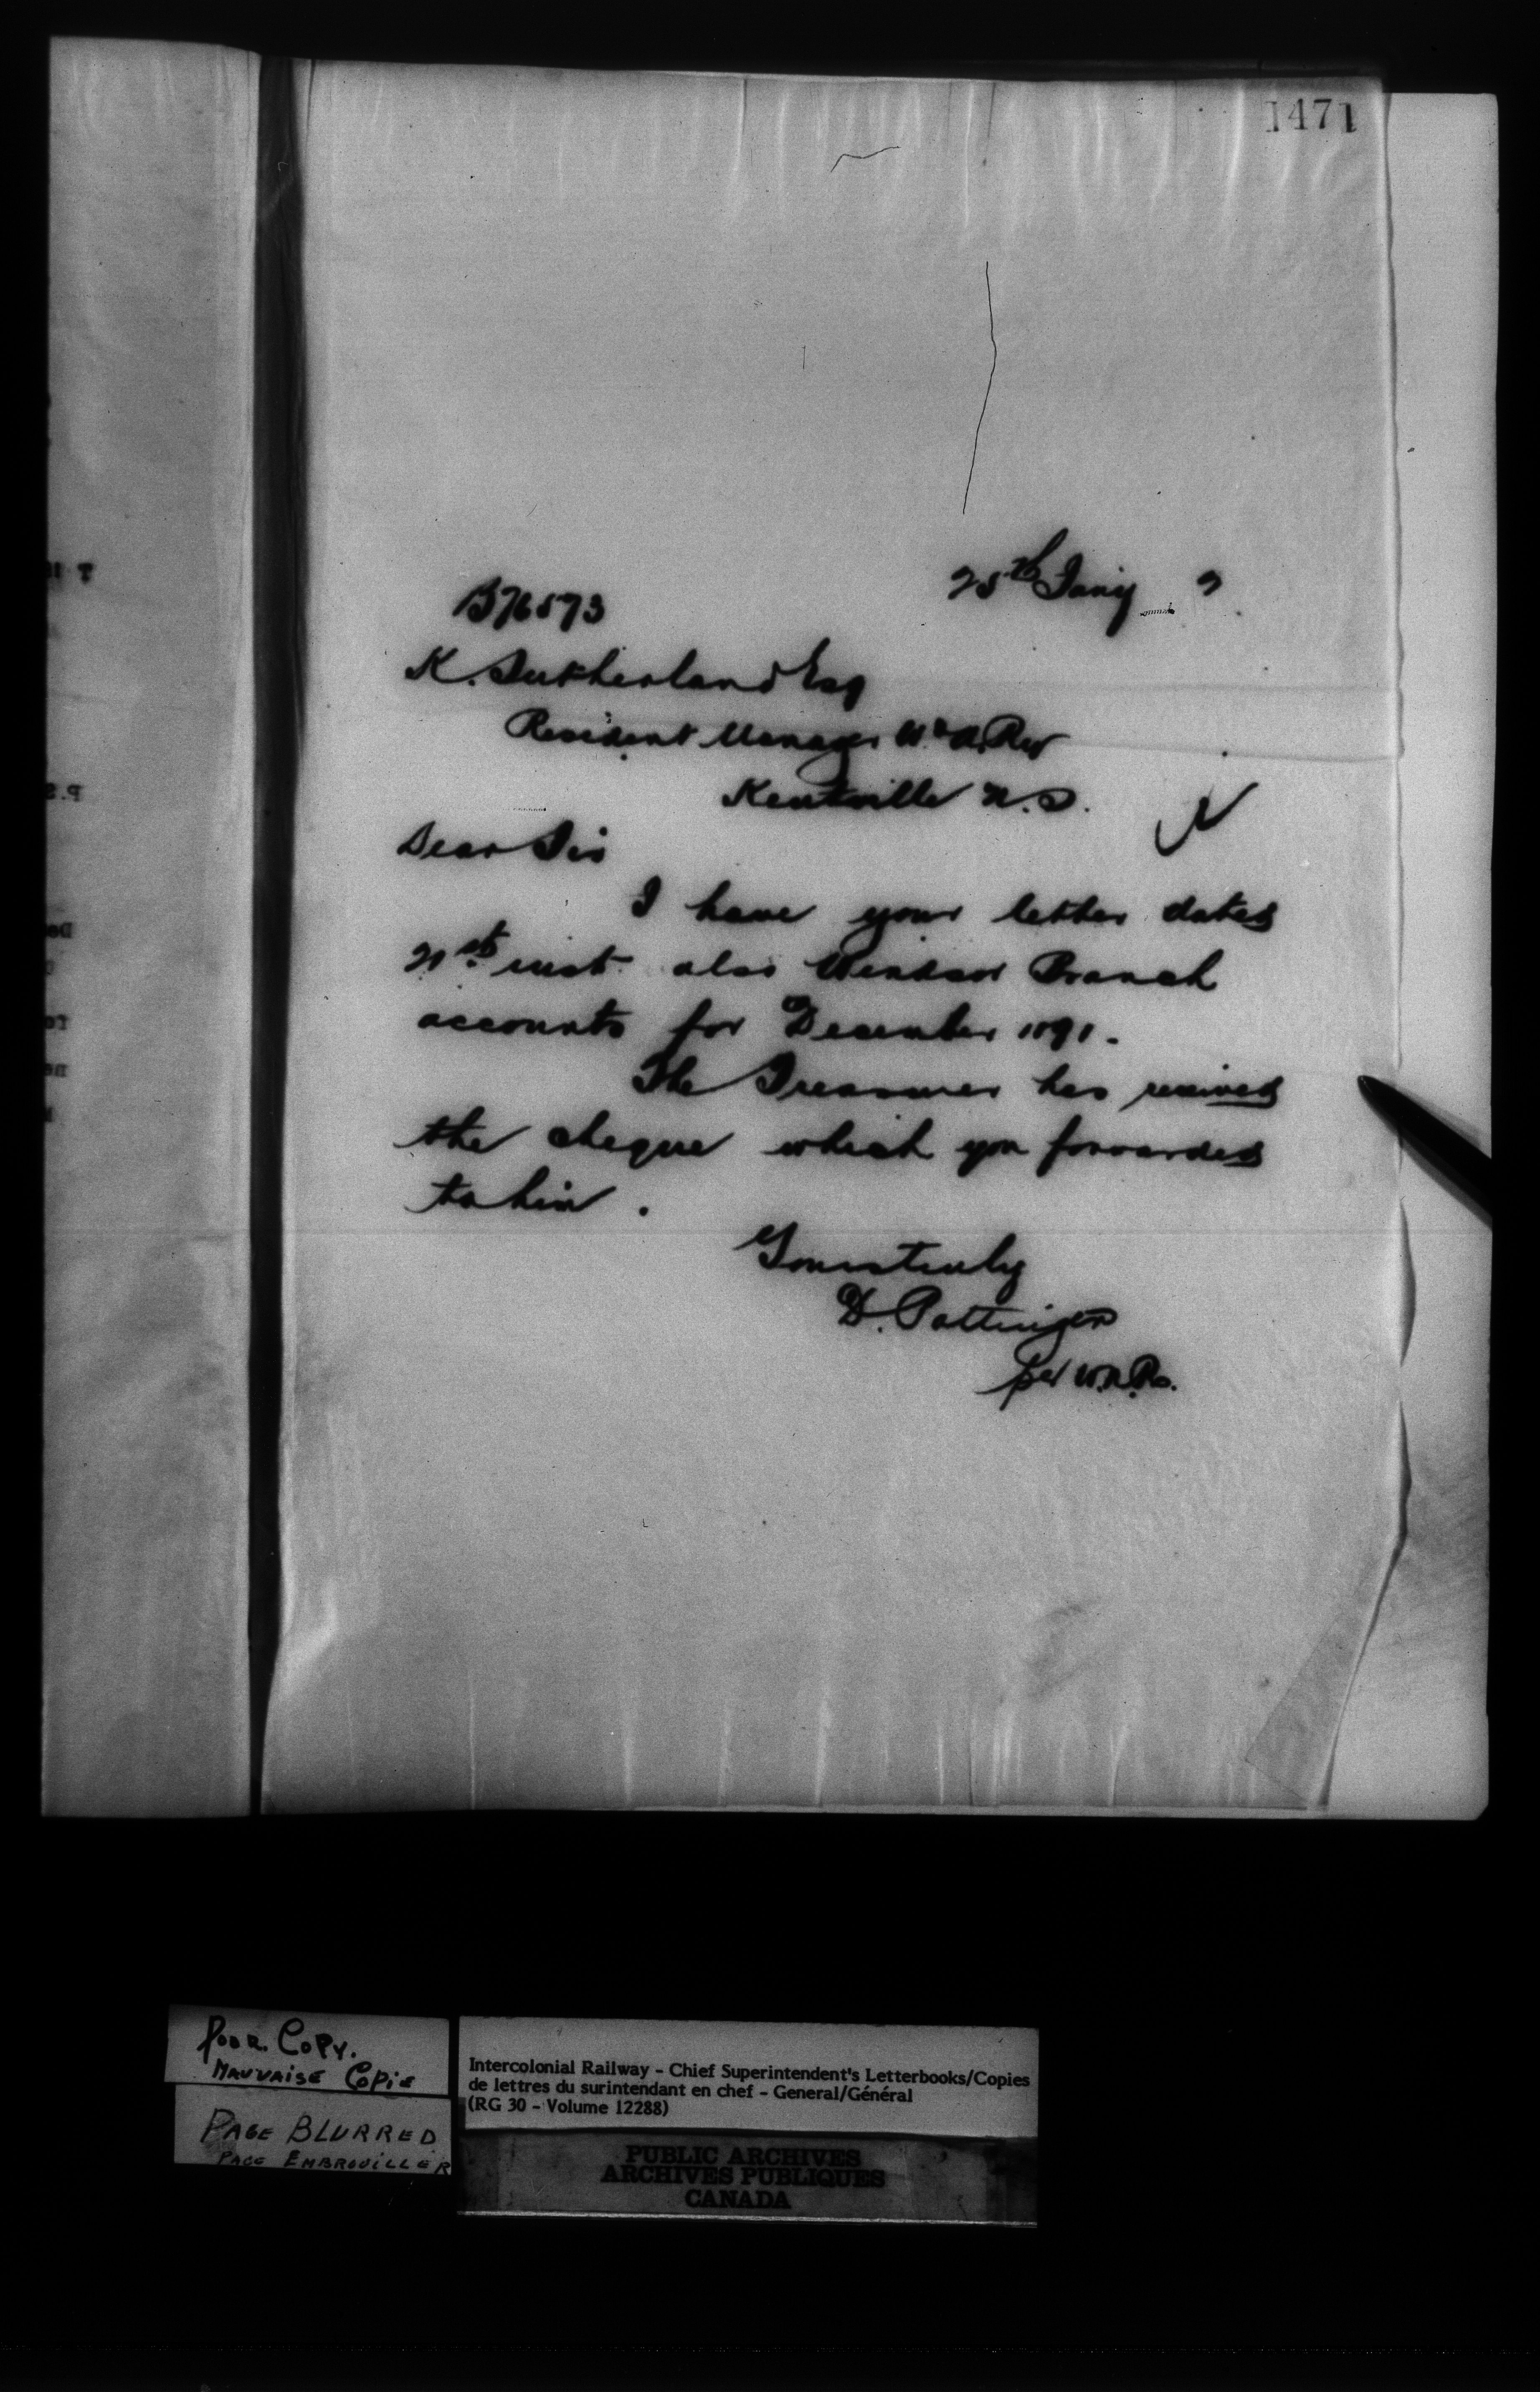 1471
25th Jany 2
B76573
K. Sutherland Esq
Resident Manager W & A. Ry
Kentville N.S.
Dear Sir
I have your letter dated
21st inst. also Windsor Branch
accounts for December 1891.
The Treasurer has received
the cheque which you forwarded
to him.
Yours truly
D. Pottinger
per
Poor Copy.
Mauvaise Copie
Page Blurred
Page Embrouiller
Intercolonial Railway - Chief Superintendent's Letterbooks/Copies
de lettres du surintendant en chef - General/Général
(RG 30 - Volume 12288)
PUBLIC ARCHIVES
ARCHIVES PUBLIQUES
CANADA